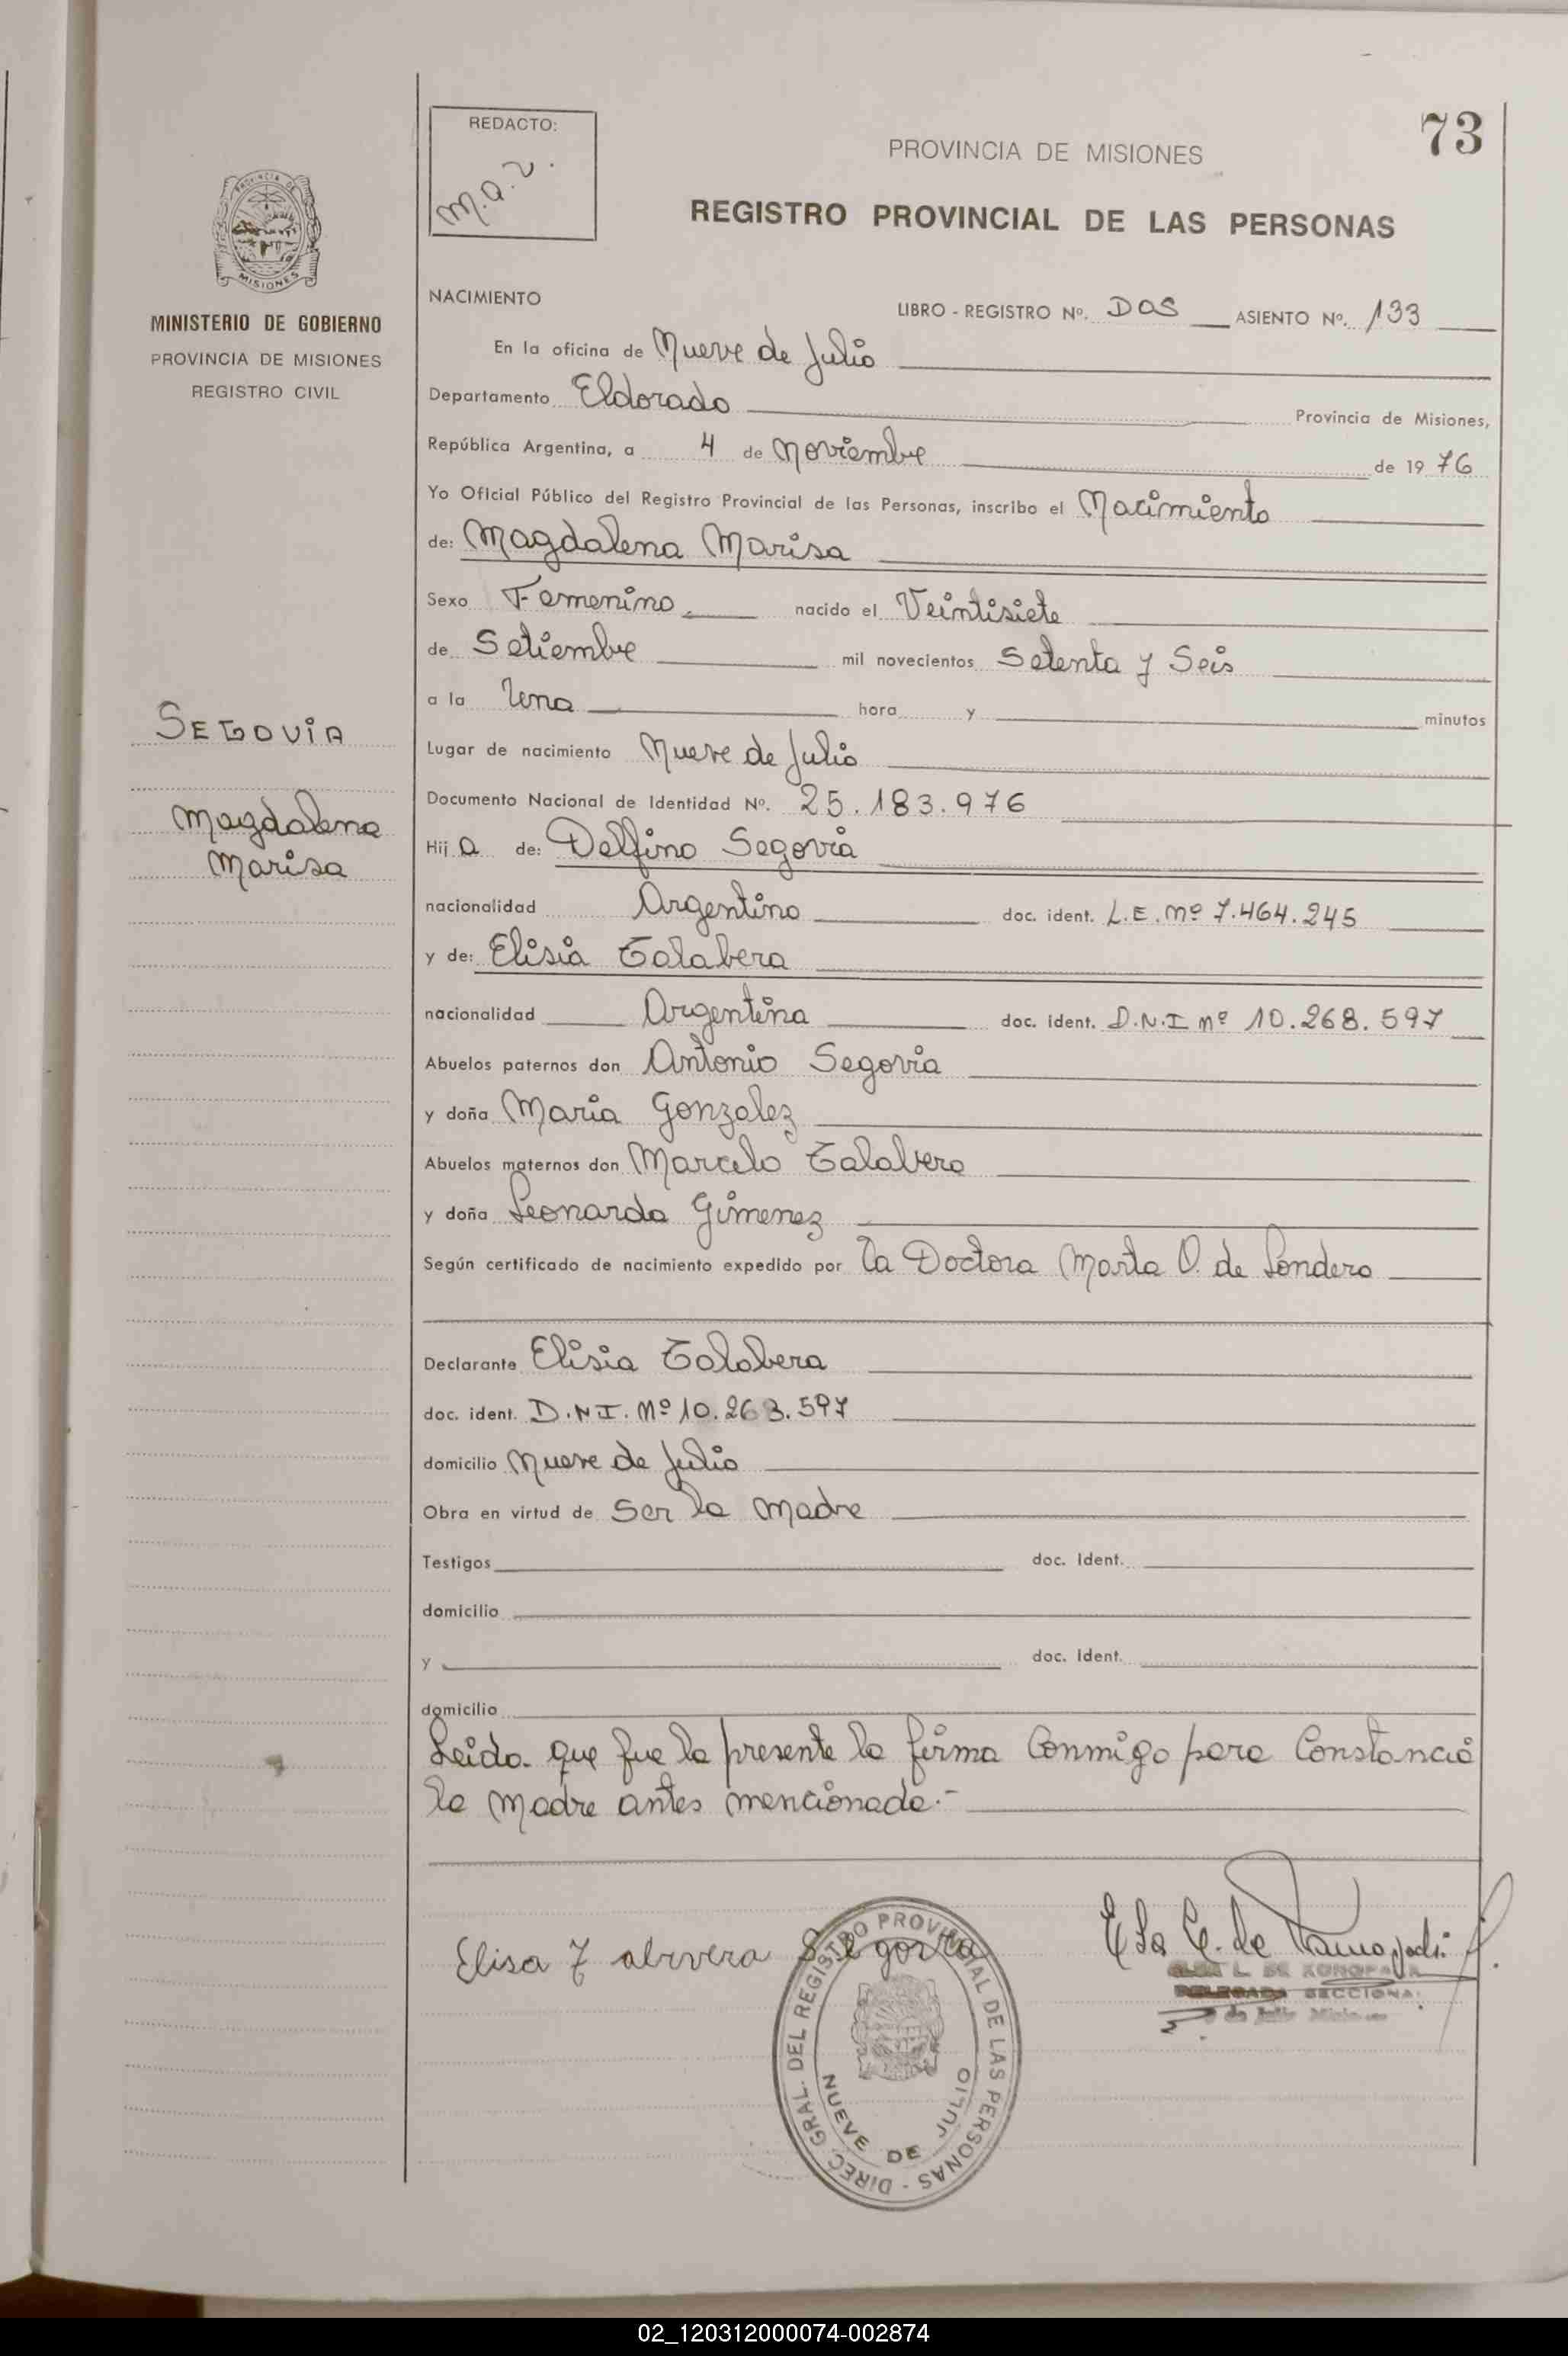 73
REDACTO:
m.a.v.
PROVINCIA DE MISIONES
REGISTRO PROVINCIAL DE LAS PERSONAS
PROVINCIA DE
MISIONES
MINISTERIO DE GOBIERNO
PROVINCIA DE MISIONES
REGISTRO CIVIL
SEGOVIA
Magdalena
Marisa
NACIMIENTO
LIBRO - REGISTRO Nº. DOS ASIENTO Nº. 133
En la oficina de Nueve de Julio
Departamento Eldorado Provincia de Misiones,
República Argentina, a 4 de Noviembre de 19 76
Yo Oficial Público del Registro Provincial de las Personas, inscribo el Nacimiento
de: Magdalena Marisa
Sexo Femenino nacido el Veintisiete
de Setiembre mil novecientos Setenta y Seis
a la Una hora y minutos
Lugar de nacimiento Nueve de Julio
Documento Nacional de Identidad Nº. 25.183.976
Hij a de: Delfino Segovia
nacionalidad Argentino doc. ident. L.E. Nº 7.464.245
y de: Elisia Talabera
nacionalidad Argentina doc. ident. D.N.I Nº 10.268.597
Abuelos paternos don Antonio Segovia
y doña Maria Gonzalez
Abuelos maternos don Marcelo Talabera
y doña Leonarda Gimenez
Según certificado de nacimiento expedido por la Doctora Marta O. de Londero
Declarante Elisia Talabera
doc. ident. D.N.I. Nº 10.263.597
domicilio Nueve de Julio
Obra en virtud de Ser la Madre
Testigos doc. Ident.
domicilio
y doc. Ident.
domicilio
Leida que fue la presente la firma Conmigo para Constancia
la Madre antes mencionada.-
Elisa Talrvera Segovia
DIREC. GRAL. DEL REGISTRO PROVINCIAL DE LAS PERSONAS -
NUEVE DE JULIO
DELEGADA SECCIONAL
02_120312000074-002874